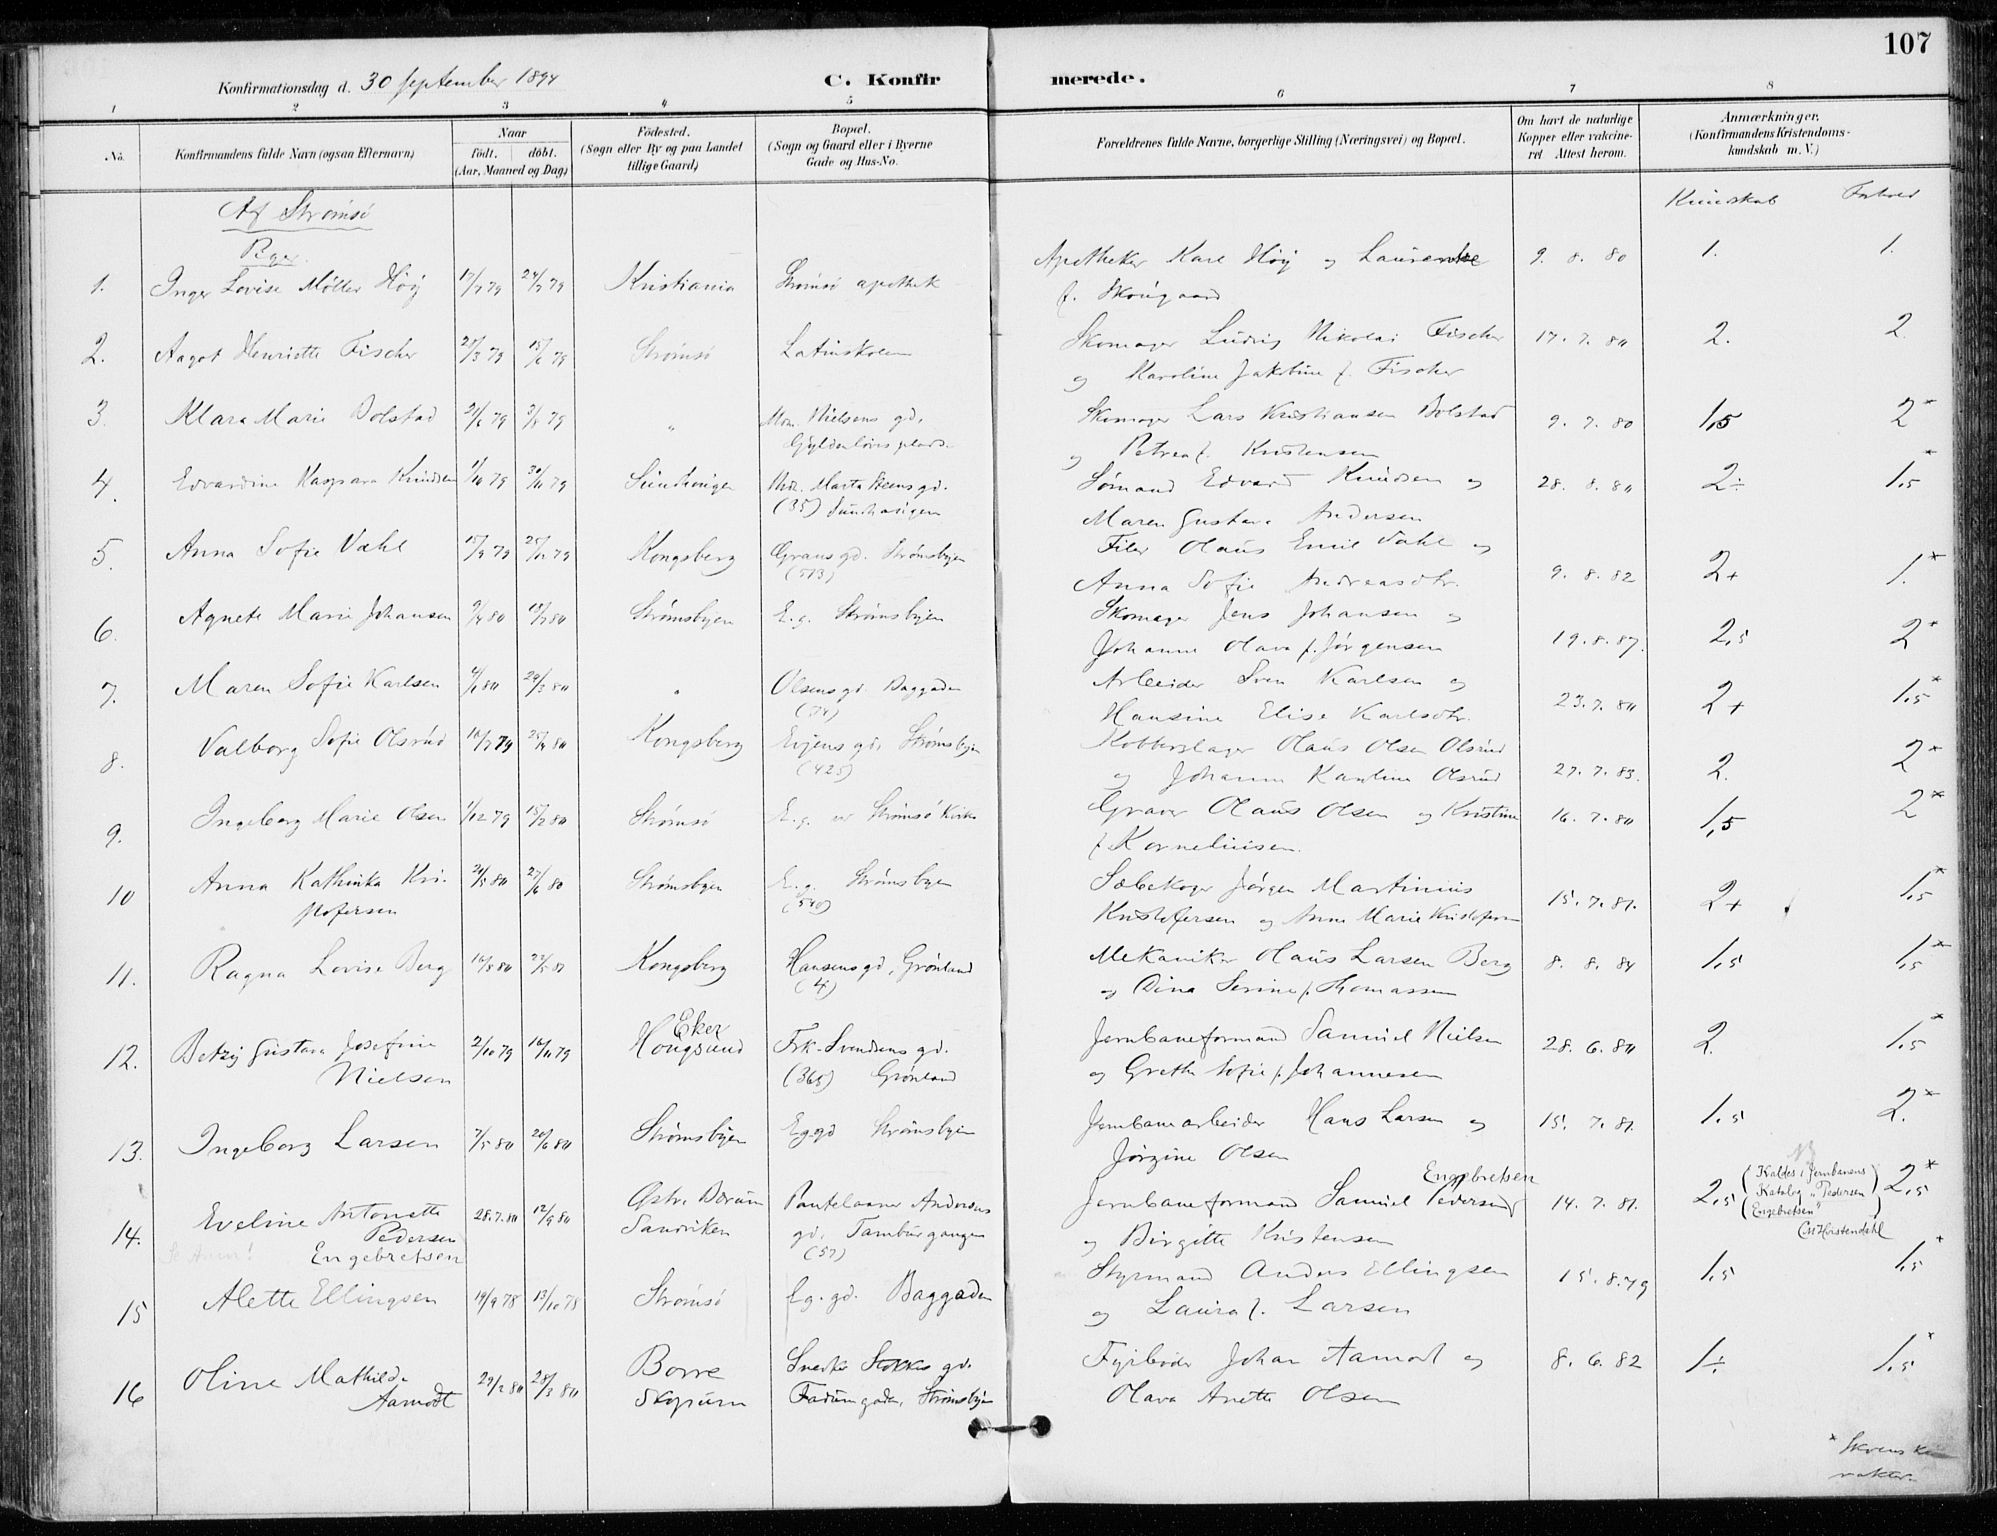 107
Konfirmationsdag d. 30 september 1894 C. Konfirmerede.
1 2 3 4 5 6 7 8
No. Konfirmandens fulde Navn (ogsaa Efternavn)
Naar født. døbt. (Aar, Maaned og Dag)
Fødested. (Sogn eller By og paa Landet tillige Gaard)
Bopæl. (Sogn og Gaard eller i Byerne Gade og Hus-No.
Forældrenes fulde Navne, borgerlige Stilling (Næringsvei) og Bopæl.
Om havt de naturlige Kopper eller vakcineret Attest herom.
Anmærkninger. (Konfirmandens Kristendomskundskab m. V.)
Af Strømsø Kundskab Forhold
Piger
1. Inger Lovise Møller Høy 17/7 79 24/7 79 Kristiania Strømsø apothek Apotheker Karl Høy og 9. 8. 80 1. 1.
f. Skougaard
2. Aagot Henriette Fischer 79 15/6 79 Strømsø Latinskolen Skomager Ludvig Nikolai Fischer 17. 7. 80 2. 2.
og Karoline Jakobine f. Fischer
3. Klara Marie Bolstad 79 79 " Nielsens gd. Skomager Lars Kristiansen Bolstad 9. 7. 80 1,5 2*
Gyldenløves plads og Petrea f. Kristensen
4. Edvardine Kaspara Knudsen 79 79 gd. Sømand Edvard Knudsen og 28. 8. 80 2÷ 1,5*
(35) Maren Gustava Andersen
5. Anna Sofie Vahl 15/9 79 79 Kongsberg Grans gd. Strømsbyen Filer Olaus Emil Vahl og 9. 8. 82 2+ 1.*
(513) Anna Sofie Andreasdtr.
6. Agnete Marie Johansen 80 80 Strømsbyen E. g. Strømsbyen Skomager Jens Johansen og 19. 8. 87. 2,5 2*
Johanne Olava f. Jørgensen
7. Maren Sofie Karlsen 80 29/3 80 " Olsens gd. Baggaden Arbeider Sven Karlsen og 23. 7. 80 2+ 1,5*
(74) Hansine Elise Karlsdtr.
8. Valborg Sofie Olsrud 79 80 Kongsberg Evjens gd. Strømsbyen Kobberslager Olaus Olsen Olsrud 27. 7. 83. 2. 2*
(425) og Johanne Olsrud
9. Ingeborg Marie Olsen 1/12 79 15/2 80 Strømsø E. g. ved Strømsø Kirke Graver Olaus Olsen og Kristine 16. 7. 80 1,5 2*
f. Korneliusen.
10 Anna Kathinka Kri- 80 27/6 80 Strømsbyen E. g. Strømsbyen Sæbekoger Jørgen Martinius 15. 7. 81. 2+ 1,5*
stofersen (540) Kristofersen og Anne Marie Kristofersen
11. Ragna Lovise Berg 16/8 80 Kongsberg Hansens gd, Grønland Mekaniker Olaus Larsen Berg 8. 8. 84 1,5 1,5*
(4) og Dina Serine f. Thomassen
12. Betzy Gustava Josefine 2/10 79 16/11 79 Eker Hougsund Frk. Svendsens gd. Jernbaneformand Samuel Nielsen 28. 6. 80 2. 1,5*
Nielsen (365) Grønland og Grethe Sofie f. Johannesen
13. Ingeborg Larsen 7/5 80 20/6 80 Strømsbyen Eg. gd Strømsbyen Jernbanearbeider Hans Larsen og 15. 7. 81. 1,5 2.*
Jørgine Olsen
Engebretsen
14. Eveline Antonette 28. 7. 80 12/9 80 Østre Bærum Pantelaaner Andersens Jernbaneformand Samuel Pedersen 14. 7. 81. 2,5 (Kaldes i Jernbanens 2,5*
Pedersen Sandviken gd. Tamburgangen og Birgitte Kristensen Katalog "Pedersen
Se Anm! Engebretsen (57) Engebretsen")
CM Horstendahl
15 Alette Ellingsen 14/9 78 13/10 78 Strømsø Eg. gd. Baggaden Styrmand Anders Ellingsen 15. 8. 79 1,5 1,5*
og Laura f. Larsen
16 Oline Mathilde 29/2 80 28/3 80 Borre Snedker Stokkes gd. Fyrbøder Johan Aamodt og 8. 6. 82 1÷ 1,5*
Aamodt Skopum Fadumgaden, Strømsbyen Olava Anette Olsen